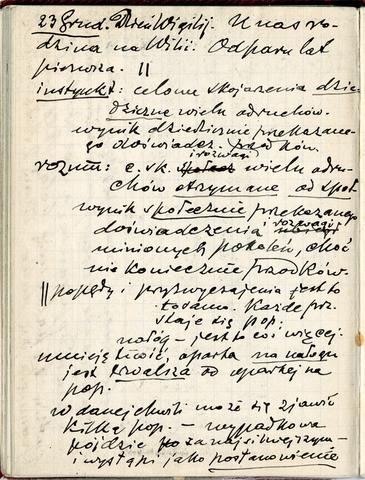 23 Grud. Dzień Wigilij. U nas ro-
dzina na Wilii. Od paru lat
pierwsza. ||
instynkt: celowe skojarzenia dzie-
dziczne wielu odruchów.
wynik dziedzicznie przekazane-
go doświadcz. przodków.
i rozwagi
rozum: c. sk. wielu odru-
chów otrzymane od społ.
wynik społecznie przekazanego
doświadczenia i rozwagi
minionych pokoleń, choć
nie koniecznie przodków.
|| popędy i przyzwyczajenia jest to
to samo. Każde prz.
staje się pop.
nałóg – jest to coś więcej.
umiejętność, oparta na nałogu
jest trwalsza od opartej na
pop.
w danej chwili może się zjawić
kilka pop. – wypadkowa
pójdzie za najsilniejszym –
i wystąpi jako postanowienie